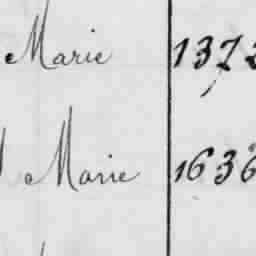 Marie 1372
Marie 1636